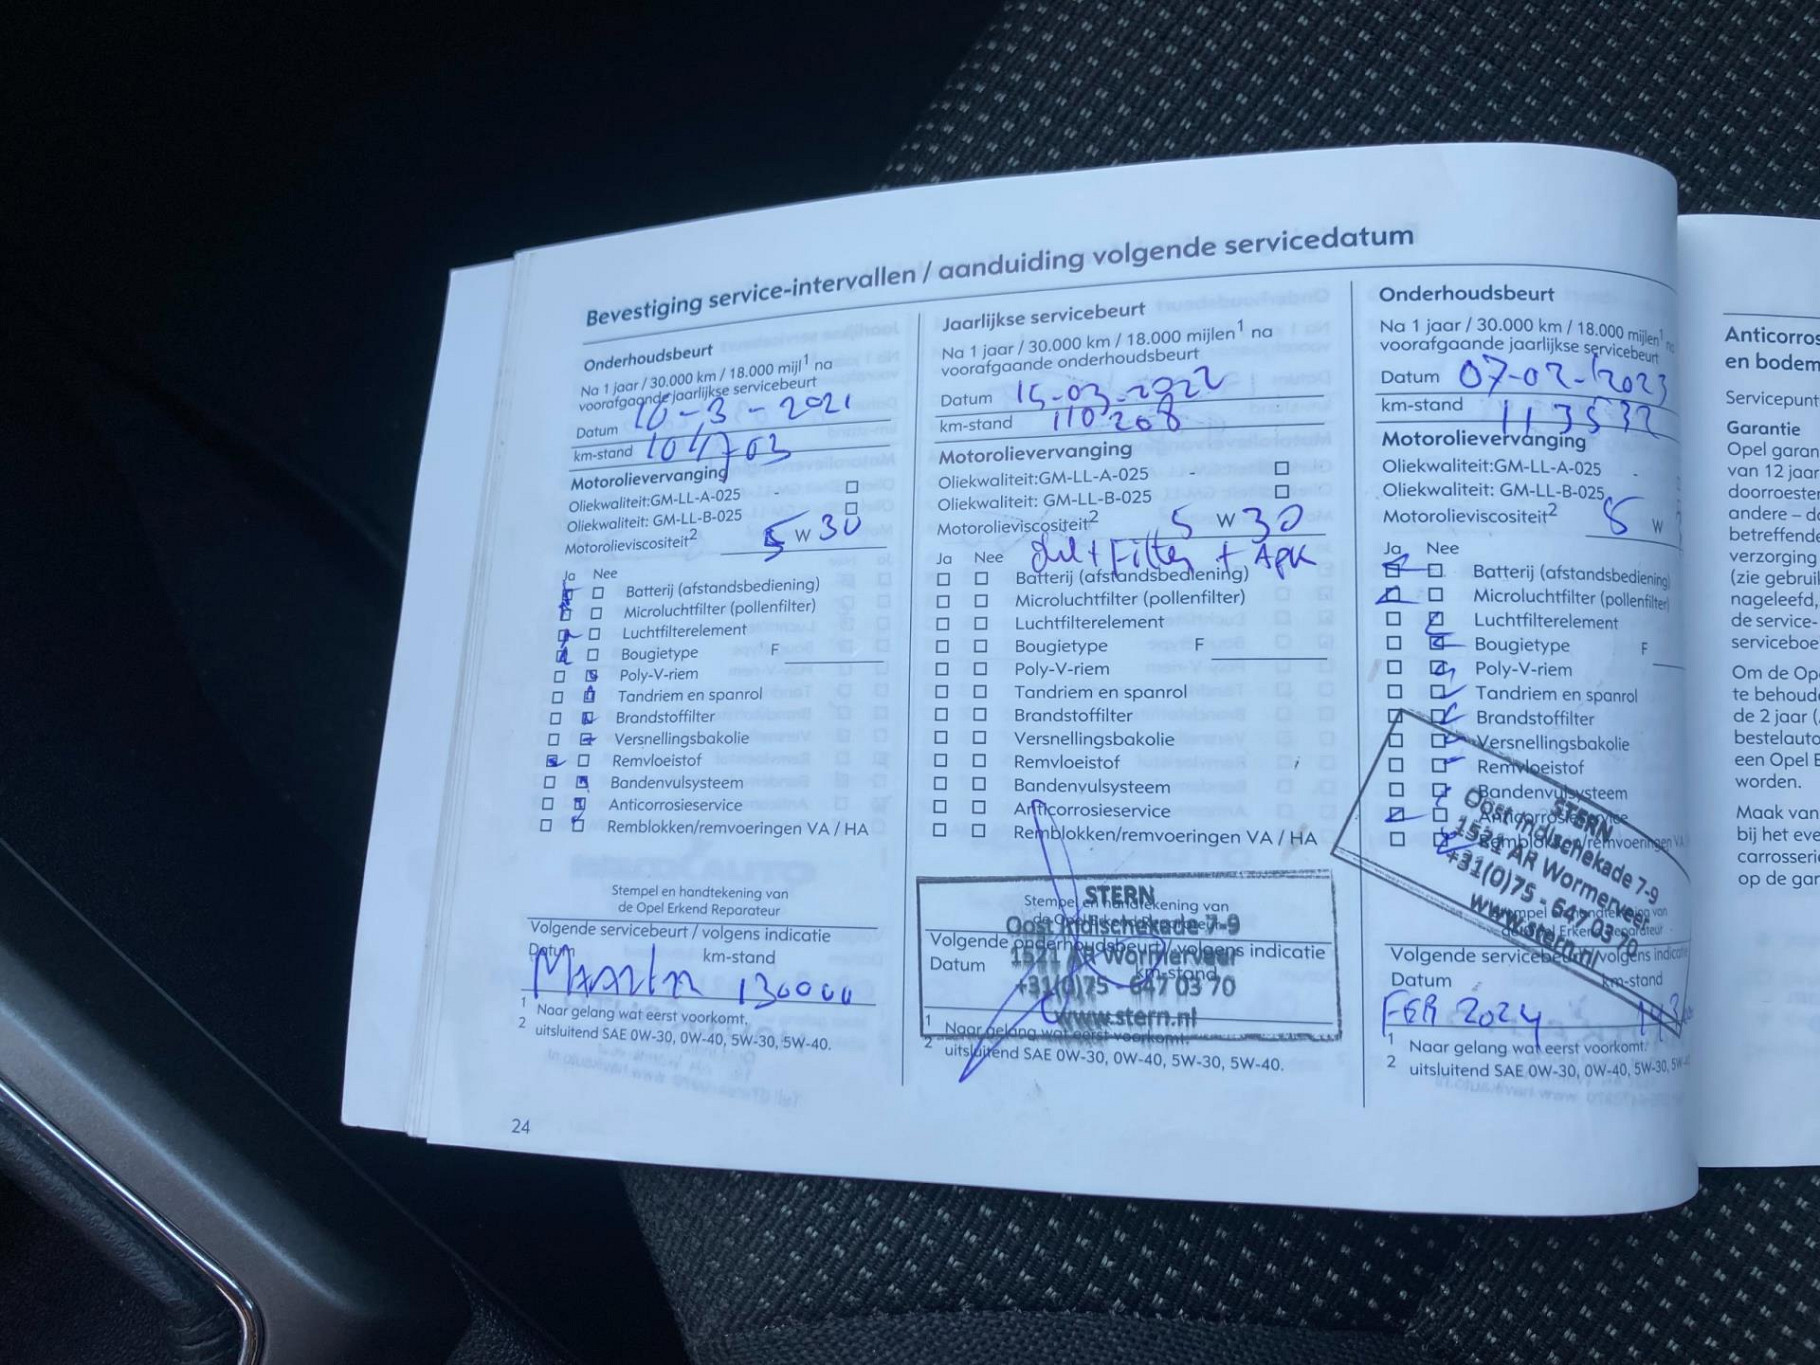 Bevestiging service-intervallen / aanduiding volgende servicedatum
Onderhoudsbeurt
Na 1 jaar / 30.000 km / 18.000 mijl¹ na
voorafgaande jaarlijkse servicebeurt
Datum 16-3-2021
km-stand 104703
Motorolievervanging
Oliekwaliteit:GM-LL-A-025
Oliekwaliteit: GM-LL-B-025
Motorolieviscositeit² 5 W 30
Ja Nee
Batterij (afstandsbediening)
Microluchtfilter (pollenfilter)
Luchtfilterelement
Bougietype F
Poly-V-riem
Tandriem en spanrol
Brandstoffilter
Versnellingsbakolie
Remvloeistof
Bandenvulsysteem
Anticorrosieservice
Remblokken/remvoeringen VA / HA
Stempel en handtekening van
de Opel Erkend Reparateur
Volgende servicebeurt / volgens indicatie
Datum km-stand
130000
1 Naar gelang wat eerst voorkomt.
2 uitsluitend SAE 0W-30, 0W-40, 5W-30, 5W-40.
24
Jaarlijkse servicebeurt
Na 1 jaar / 30.000 km / 18.000 mijlen¹ na
voorafgaande onderhoudsbeurt
Datum 15-03-2022
km-stand 110208
Motorolievervanging
Oliekwaliteit:GM-LL-A-025
Oliekwaliteit: GM-LL-B-025
Motorolieviscositeit² 5 W 30
Ja Nee + Filter + APK
Batterij (afstandsbediening)
Microluchtfilter (pollenfilter)
Luchtfilterelement
Bougietype F
Poly-V-riem
Tandriem en spanrol
Brandstoffilter
Versnellingsbakolie
Remvloeistof
Bandenvulsysteem
Anticorrosieservice
Remblokken/remvoeringen VA / HA
Stempel en handtekening van
STERN
Oost Indischekade 7-9
1521 AR Wormerveer
+31(0)75 - 647 03 70
www.stern.nl
Volgende onderhoudsbeurt / volgens indicatie
Datum km-stand
1 Naar gelang wat eerst voorkomt.
2 uitsluitend SAE 0W-30, 0W-40, 5W-30, 5W-40.
Onderhoudsbeurt
Na 1 jaar / 30.000 km / 18.000 mijlen¹ na
voorafgaande jaarlijkse servicebeurt
Datum 07-02-2023
km-stand 113532
Motorolievervanging
Oliekwaliteit:GM-LL-A-025
Oliekwaliteit: GM-LL-B-025
Motorolieviscositeit² 5 W
Ja Nee
Batterij (afstandsbediening)
Microluchtfilter (pollenfilter)
Luchtfilterelement
Bougietype F
Poly-V-riem
Tandriem en spanrol
Brandstoffilter
Versnellingsbakolie
Remvloeistof
Bandenvulsysteem
Anticorrosieservice
Remblokken/remvoeringen VA
STERN
Oost Indischekade 7-9
1521 AR Wormerveer
+31(0)75 - 647 03 70
www.stern.nl
Stempel en handtekening van
de Opel Erkend Reparateur
Volgende servicebeurt / volgens indicatie
Datum km-stand
FEB 2024
1 Naar gelang wat eerst voorkomt.
2 uitsluitend SAE 0W-30, 0W-40, 5W-30,
Anticorros
en bodem
Servicepunt
Garantie
Opel garan
van 12 jaar
doorroester
andere – do
betreffende
verzorging
(zie gebruil
nageleefd,
de service-
serviceboe
Om de Ope
te behoude
de 2 jaar (
bestelauto
een Opel E
worden.
Maak van
bij het eve
carrosserie
op de gar